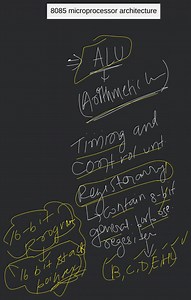 8085 microprocessor architecture
ALU
(Arithmetic
Timing and
Control unit
Register array
Contain 8-bit
general
register
(B, C, D, E, H, L)
16-bit
program
16 bit stack
pointer